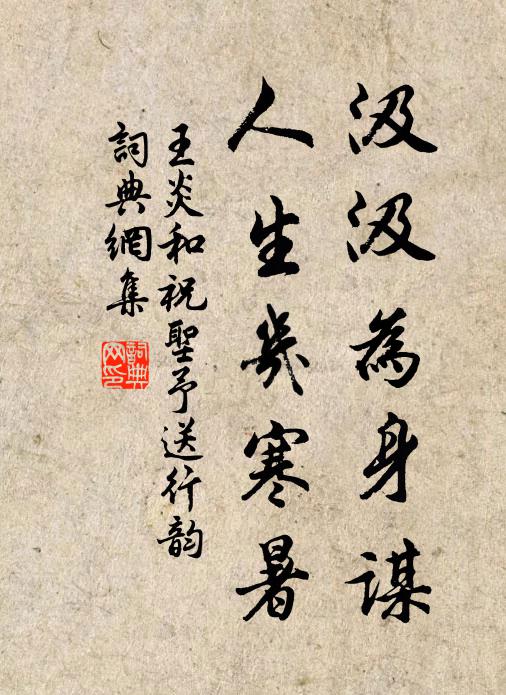 汲汲為身謀
人生幾寒暑
王炎和祝聖予送行韵
詞典網集
詞典
网印